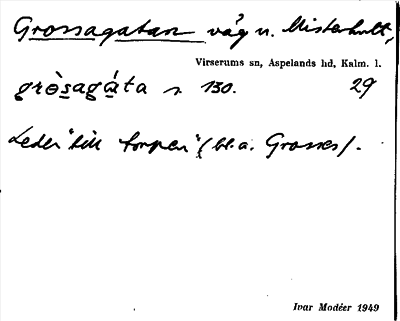 Grossagatan väg u. Misterhult,
Virserums sn, Aspelands hd, Kalm. l.
gròsagáta s. 130. 29
Leder "till torpen" (bl.a. Grosses).
Ivar Modéer 1949